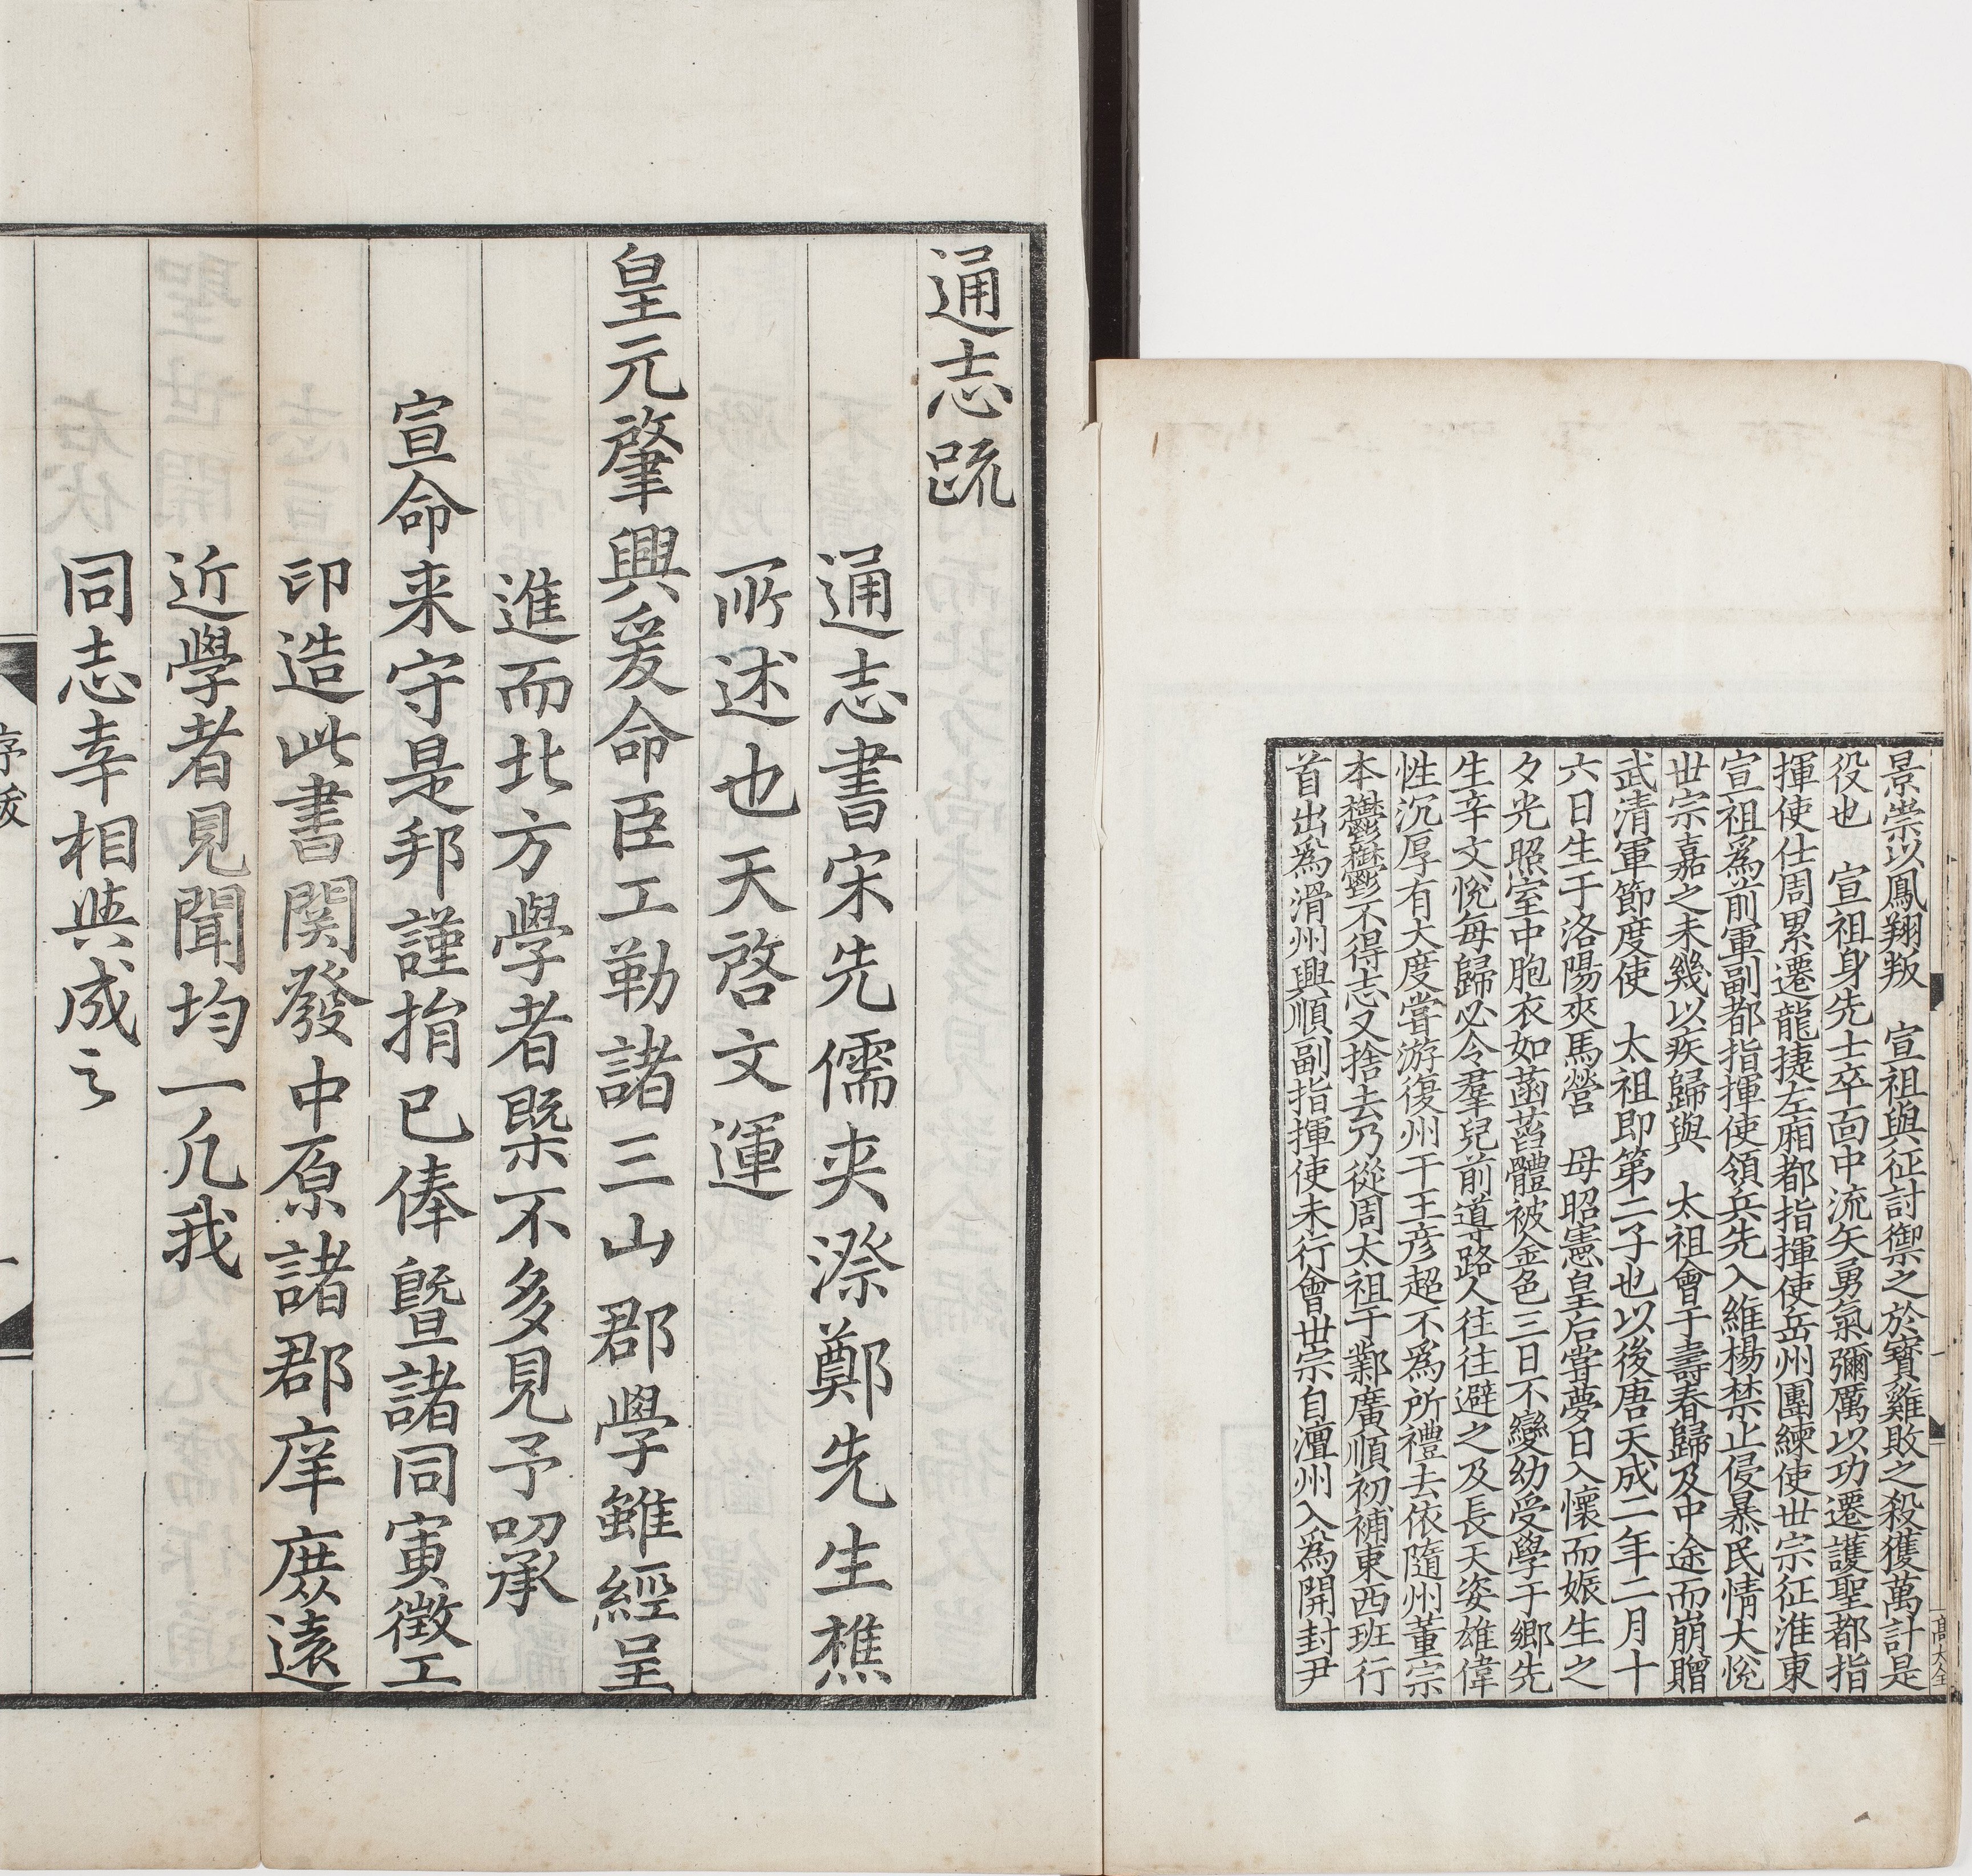 景崇以鳳翔叛　宣祖與征討禦之於寶雞敗之殺獲萬計是
役也　宣祖身先士卒面中流矢勇氣彌厲以功遷護聖都指
揮使仕周累遷龍捷左廂都指揮使岳州團練使世宗征淮東
宣祖爲前軍副都指揮使領兵先入維楊禁止侵暴民情大悅
世宗嘉之未幾以疾歸與　太祖會于壽春歸及中途而崩贈
武清軍節度使　太祖即第二子也以後唐天成二年二月十
六日生于洛陽夾馬營　母昭憲皇后嘗夢日入懷而娠生之
夕光照室中胞衣如菡萏體被金色三日不變幼受學于鄉先
生辛文悅每歸必令羣兒前導路人往往避之及長天姿雄偉
性沉厚有大度嘗游復州干王彦超不爲所禮去依隨州董宗
本鬱鬱不得志又捨去乃從周太祖于鄴廣順初補東西班行
首出爲滑州興順副指揮使未行會世宗自澶州入爲開封尹
通志䟽
通志書宋先儒夾漈鄭先生樵
所述也天啓文運
皇元肇興爰命臣工勒諸三山郡學雖經呈
進而北方學者槩不多見予叨承
宣命来守是邦謹捐已俸曁諸同寅徵工
印造此書関發中原諸郡庠庶遠
近學者見聞均一凢我
同志幸相與成之
序䟽
一